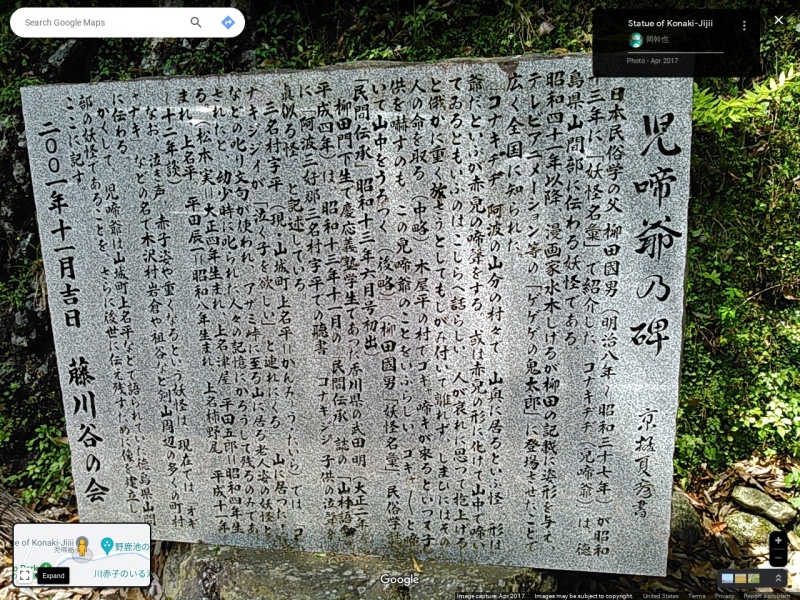 児啼爺の碑
京極夏彦書
日本民俗学の父 柳田國男(明治八年〜昭和三十七年)が昭和
十三年に、「妖怪名彙」で紹介した コナキヂヂ(児啼爺)は、徳
島県山間部に伝わる妖怪である。
昭和四十一年以降、漫画家水木しげるが柳田の記載に姿形を与え、
テレビアニメーション等の「ゲゲゲの鬼太郎」に登場させたことで、
広く全国に知られた。
「コナキヂヂ 阿波の山分の村々で、山奥に居るといふ怪。形は
爺だといふが赤児の啼聲をする。或は赤児の形に化けて山中で啼
てゐるともいふのはこしらへ話らしい。人が哀れに思つて抱上げ
と俄かに重く放さうとしてもしがみ付いて離れず、しまひにはその
人の命を取る(中略)木屋平の村で 啼キが来るといつて子
供を嚇すのも、この児啼爺のことをいふらしい。 と啼
いて山中をうろつく(後略)(柳田國男「妖怪名彙」民俗学
「民間伝承」昭和十三年六月号初出)
柳田門下生で慶応義塾学生であった香川県の武田明(大正二年
平成四年)は、昭和十三年十一月の「民間伝承」誌の「山村語彙
に「阿波三好郡三名村字平での聴書 コナキジジ 子供の泣声
真似る怪」と記述している。
三名村字平(現・山城町上名平=かんみょうだいら)では、「コ
ナキジジイが「泣く子を欲しい」と連れにくる。山に
などの叱り文句が使われ、アザミ峠に至る山に居る老人姿の妖怪
されたと、幼少時に叱られた人々の記憶にかろうじて残るのみであ
る。(松本実=大正四年生まれ、上名津屋 平田五郎=昭和四年生
まれ、上名平 平田辰一=昭和八年生まれ、上名柿野尾 平成十一年
〜十二年談)
なお、泣き声、赤子姿や重くなるという妖怪は、現在では「オギ
ャナキ」などの名で木沢村岩倉や祖谷など剣山周辺の多くの町村
に伝わる。
かくして、児啼爺は山城町上名平などで語られていた徳島県山間
部の妖怪であることを、さらに後世に伝え残すために像を建立し、
ここに記す。
二〇〇一年十一月吉日 藤川谷の会
Search Google Maps
Statue of Konaki-Jijii
岡幹也
Photo - Apr 2017
e of Konaki-Jijii
児啼爺
野鹿池の
川赤子のいる
Expand
Google
Image capture: Apr 2017
Images may be subject to copyright.
United States
Terms
Privacy
Report a problem